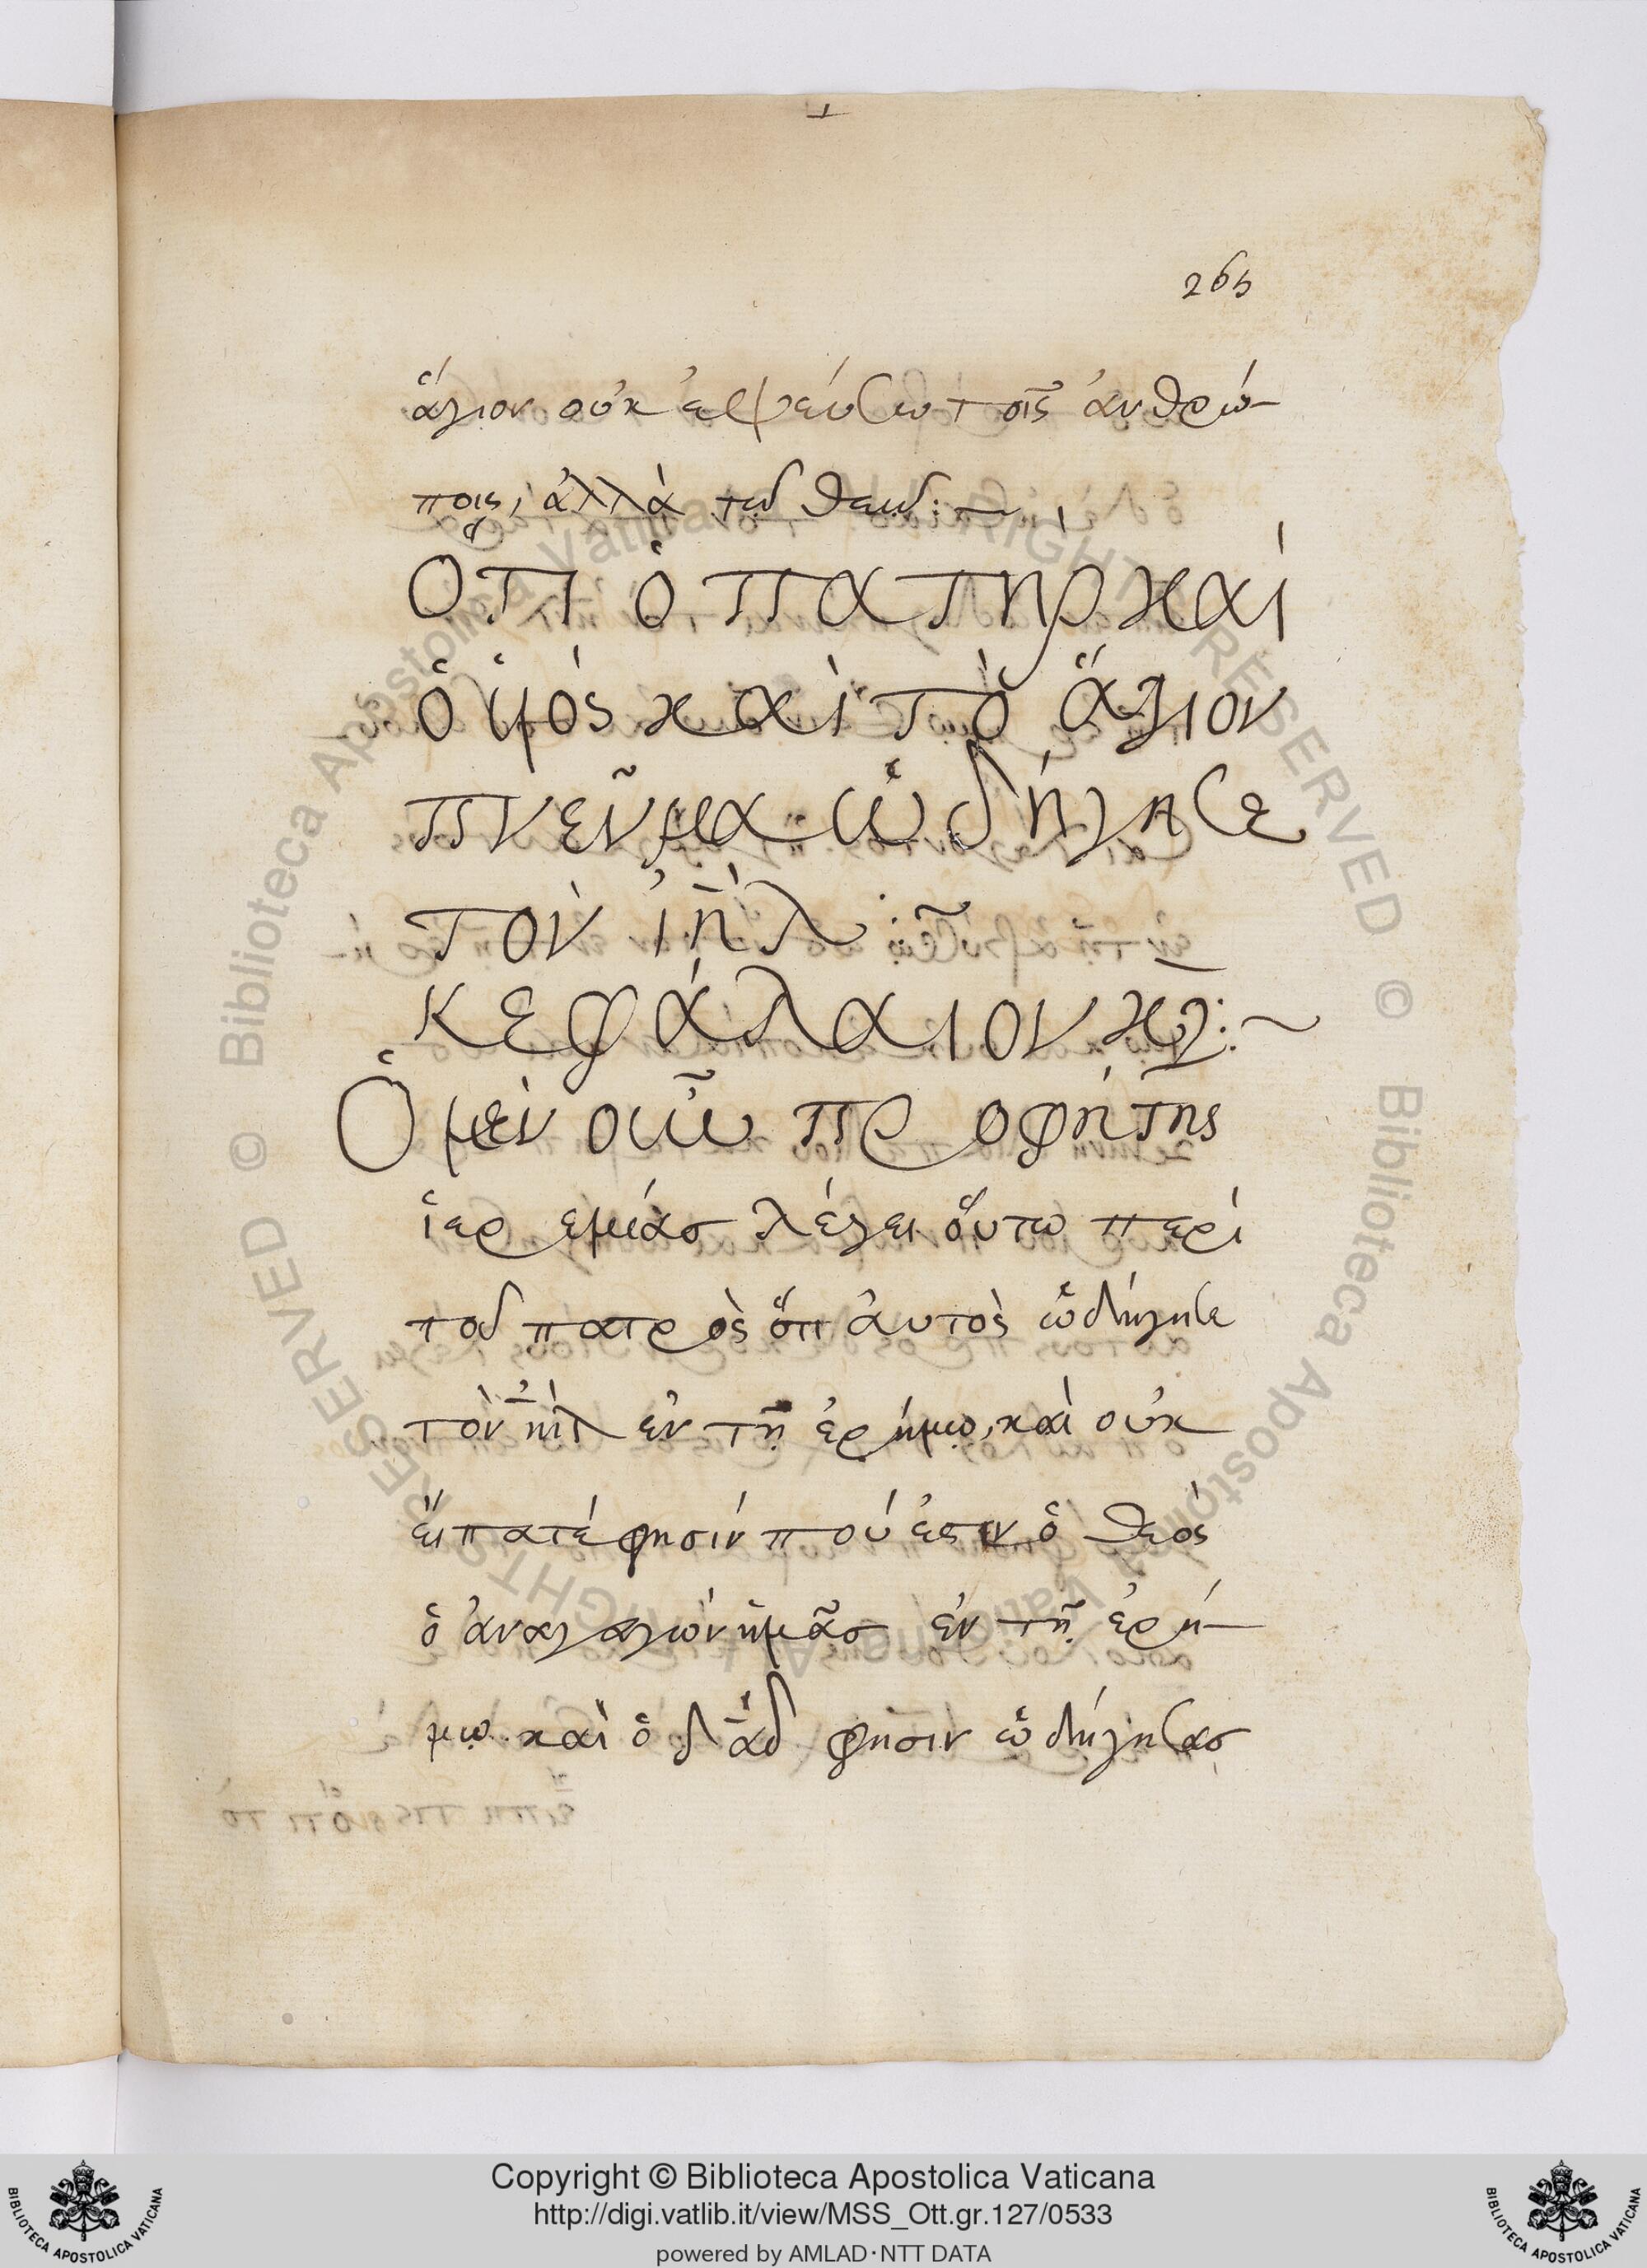 265
ἅγιον οὐκ ἐψεύσω τοῖς ἀνθρώ-
ποις, ἀλλὰ τῷ θεῷ:~
Ὅτι ὁ πατὴρ καὶ
ὁ υἱὸς καὶ τὸ ἅγιον
πνεῦμα ὡδήγησε
τὸν ἰηλ:~
κεφάλαιον κζ:~
Ὁ μὲν οὖν προφήτης
ἱερεμίασ λέγει ὅυτω περὶ
τοῦ πατρὸς ὅτι ἀυτὸς ὡδήγησε
τὸν ιηλ ἐν τῆ ἐρήμω, καὶ οὐκ
ἔιπατέ φησίν που ἐστιν ὁ θεός
ὁ ἀναγαγὼν ἡμᾶσ ἐν τῆ ἐρή-
μω. καὶ ὁ δαδ φησιν ὡδήγησασ
Copyright © Biblioteca Apostolica Vaticana
http://digi.vatlib.it/view/MSS_Ott.gr.127/0533
powered by AMLAD·NTT DATA
BIBLIOTECA APOSTOLICA VATICANA
BIBLIOTECA APOSTOLICA VATICANA